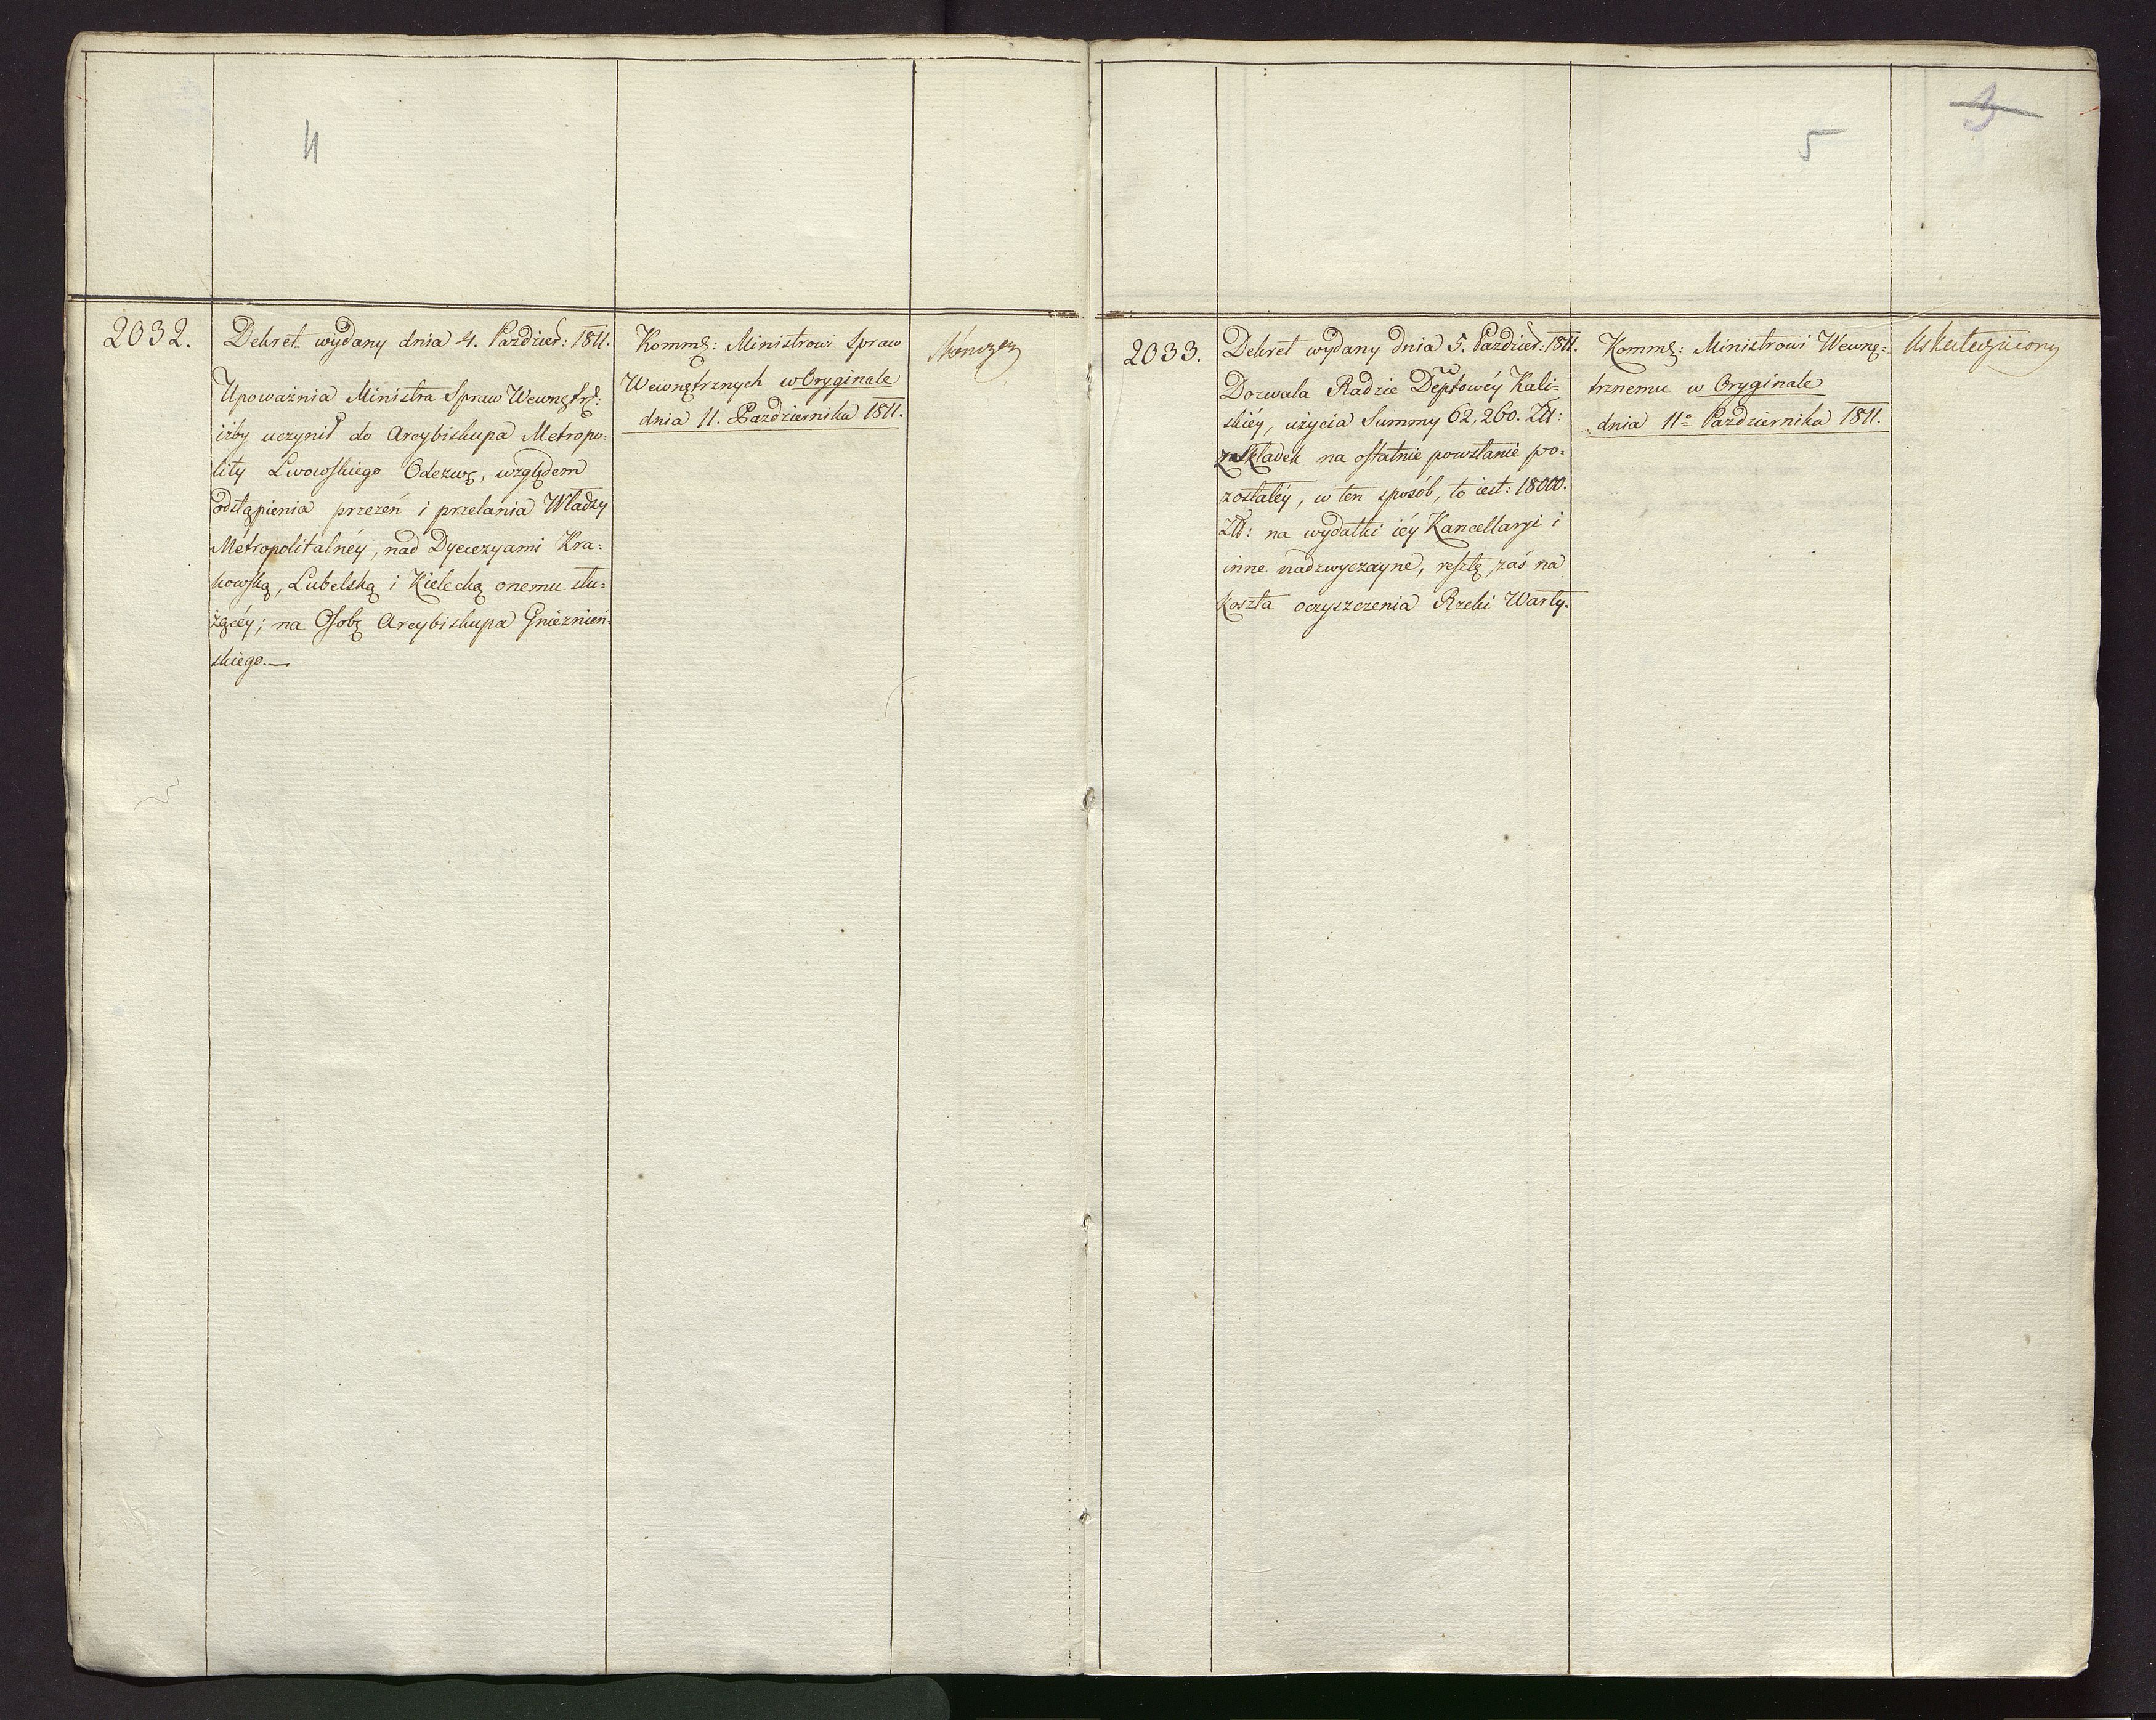 4
2032.
Dekret wydany dnia 4. Paździer: 1811.
Upoważnia Ministra Spraw Wewnętrz:
iżby uczynił do Arcybiskupa Metropo:
lity Lwowskiego Odezwę, względem
odstąpienia przezeń i przelania Władzy
Metropolitalnéy, nad Dyecezyami Kra:
kowską, Lubelską i Kielecką onemu słu:
żącéy; na Osobę Arcybiskupa Gnieznień:
skiego.—
Komm: Ministrowi Spraw
Wewnętrznych w Oryginale
dnia 11. Października 1811.
5
3
2033.
Dekret wydany dnia 5. Paździer: 1811.
Dozwala Radzie Deptowéy Kali=
skiéy, użycia Summy 62,260. Złł:
ze składek na ostatnie powstanie po=
zostałéy, w ten sposób, to iest: 18000.
Złł: na wydatki iéy Kancellaryi i
inne nadzwyczayne, resztę zaś na
koszta oczyszczenia Rzeki Warty.
Komm: Ministrowi Wewnę=
trznemu w Oryginale
dnia 11o Października 1811.
Uskuteczniony